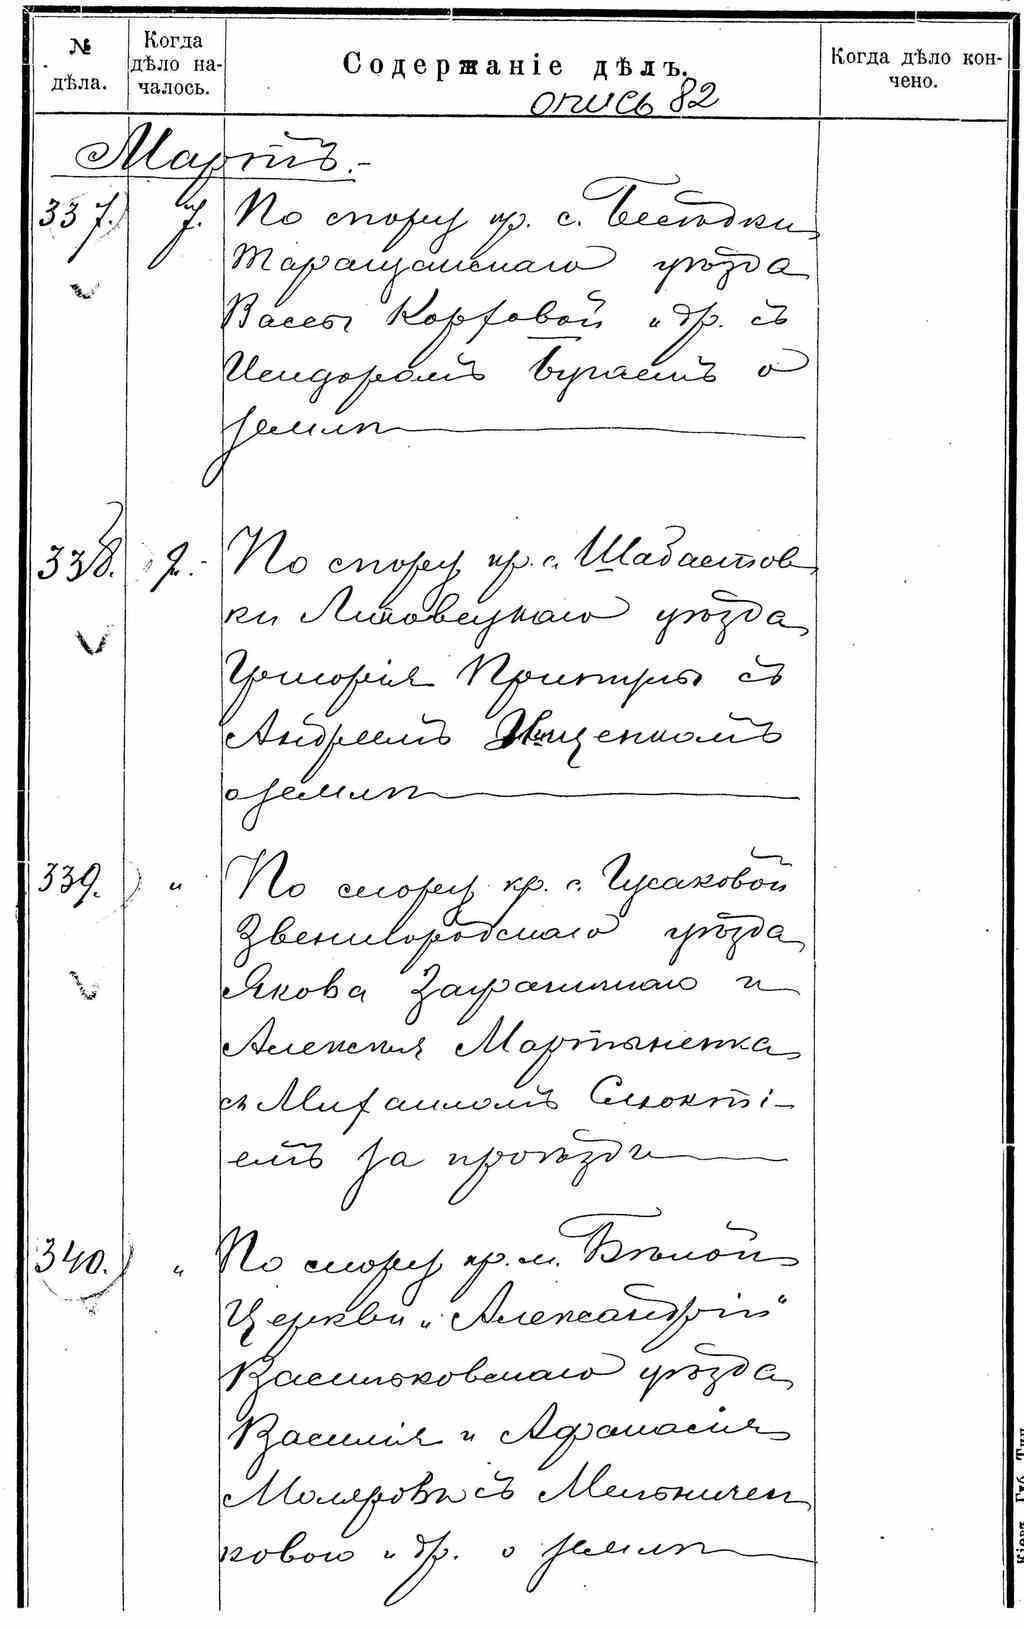 № дѣла.
Когда дѣло на-
чалось.
Содержаніе дѣлъ.
Когда дѣло кон-
чено.
опись 82
Мартъ.
337. 7. По спору кр. с. Бесѣдки
Таращанскаго уѣзда
Вассы Корховой и др. съ
Исидоромъ Бугаемъ о
землѣ
338. 9. По спору кр. с. Шабастов
ки Липовецкаго уѣзда
Григорія Припуты съ
Андреемъ Ищенкомъ
о землѣ
339. " По спору кр. с. Гусаковой
Звенигородскаго уѣзда
Якова Заграничнаго и
Алексѣя Мартыненка
съ Михаиломъ
емъ за проѣздъ
340. " По спору кр. м. Бѣлой
Церкви „Александрій"
Васильковскаго уѣзда
Василія и Афанасія
Моляровы съ Мельничен
ковою и др. о землѣ
Кіевъ Губ. Тип.